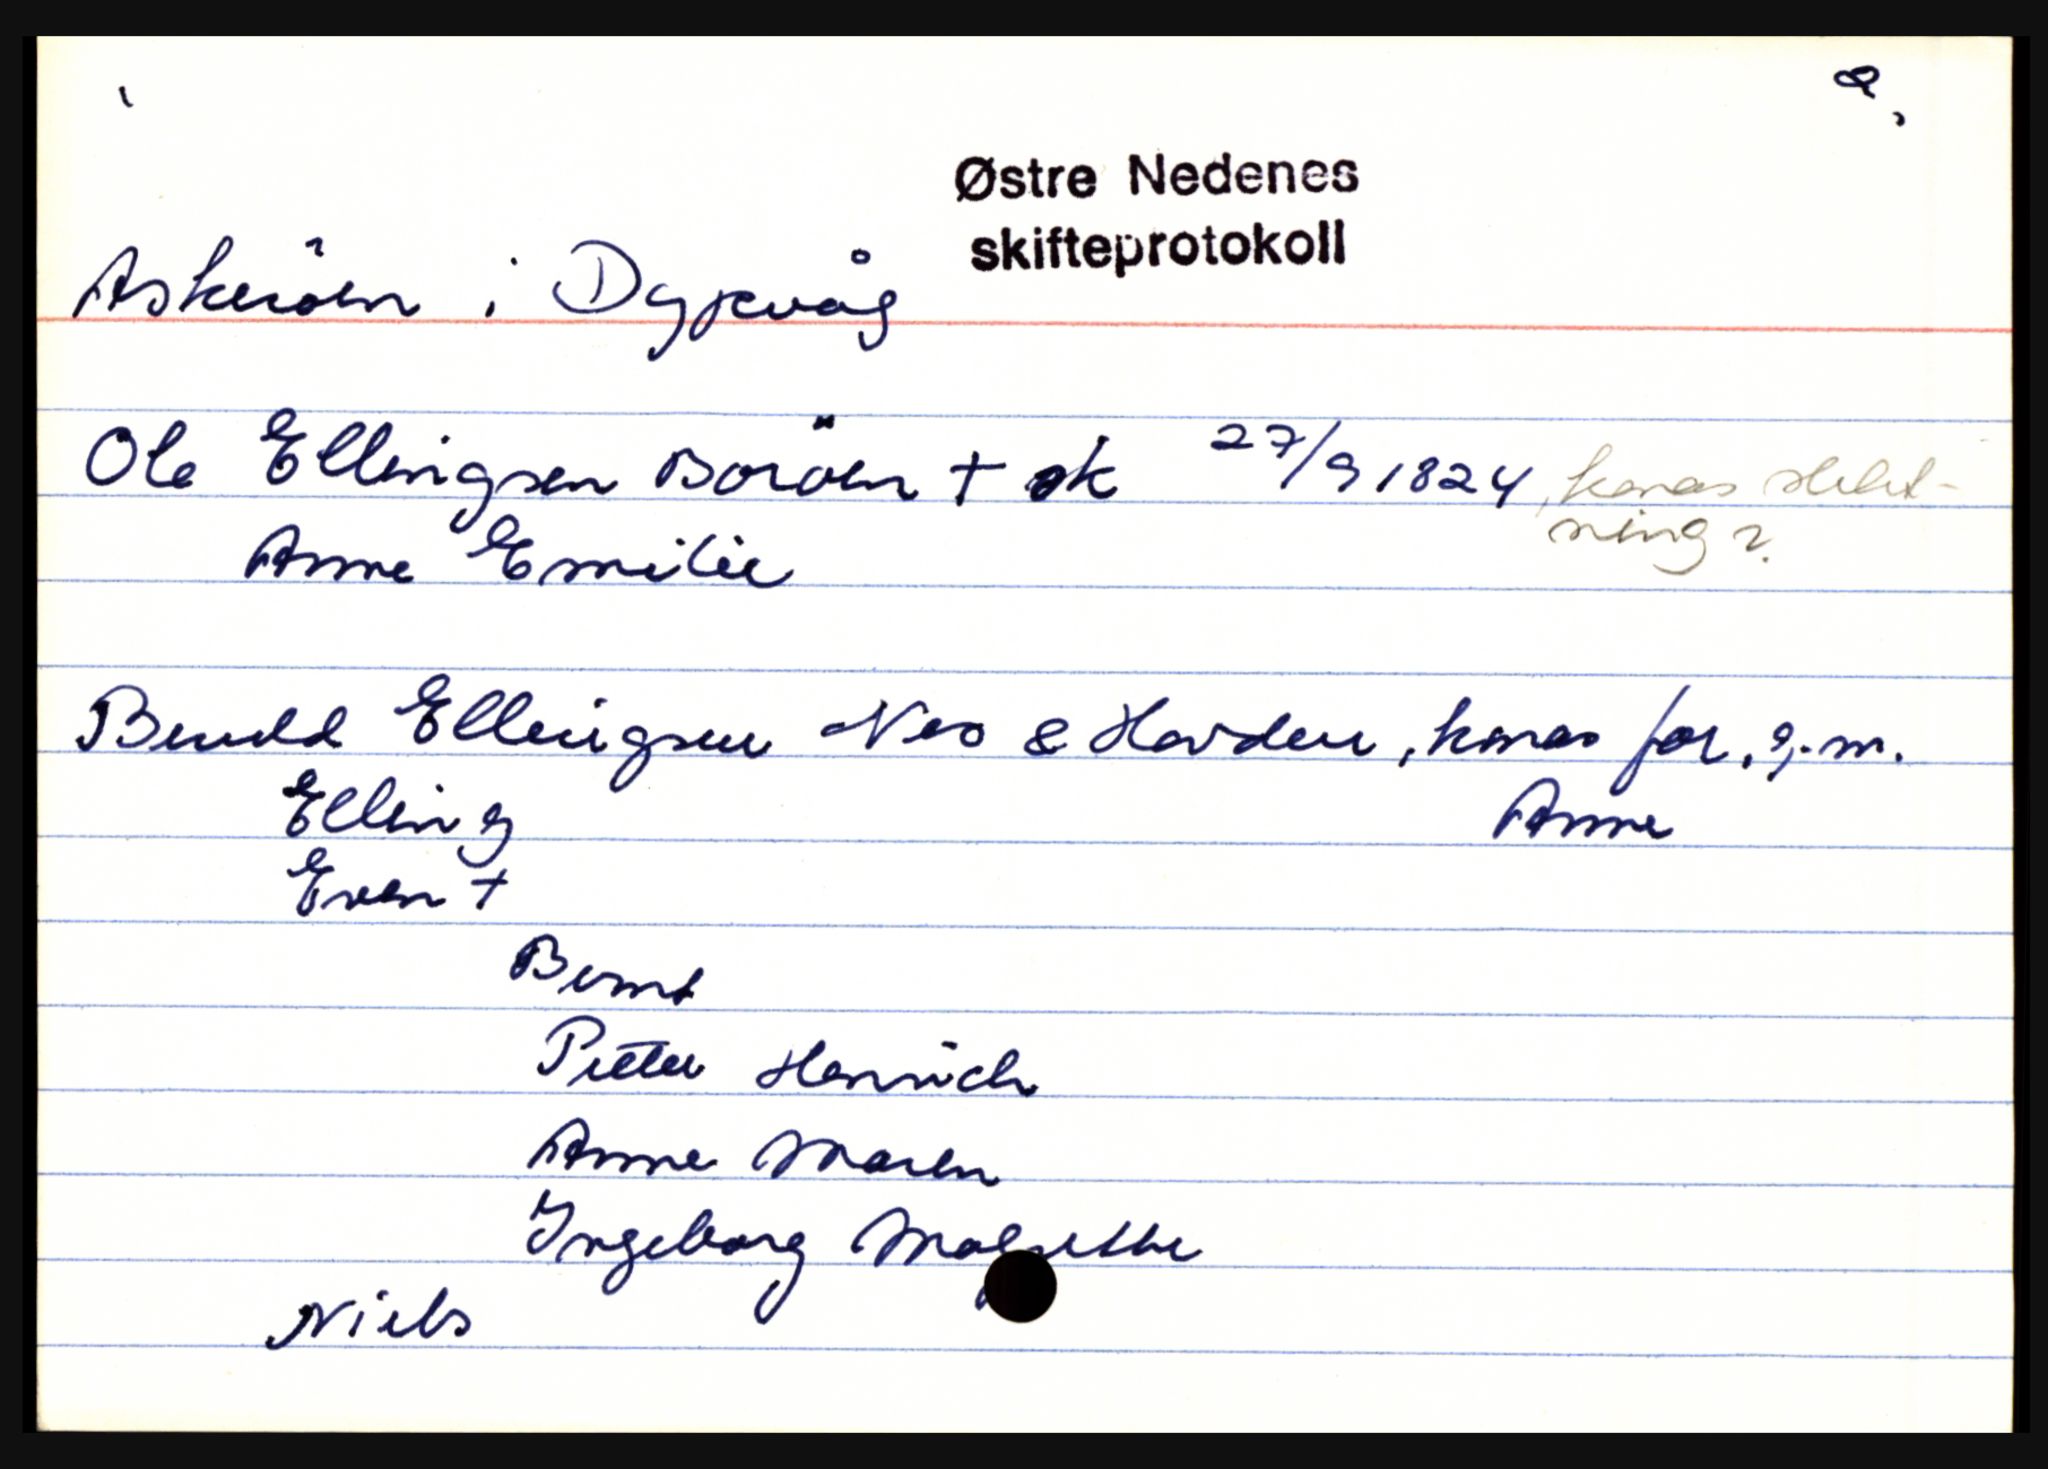 8.
Østre Nedenes
skifteprotokoll
Askeröen i Dypvåg
Ole Ellingsen Boröen + sk 27/9 1824, konas slekt-
ning?
Anne Emilie
Ellingsen Nes & Havden, konas far, g.m.
Elling Anne
Even +
Bernt
Pieter Henrich
Anne Maren
Ingeborg Malgrethe
Niels